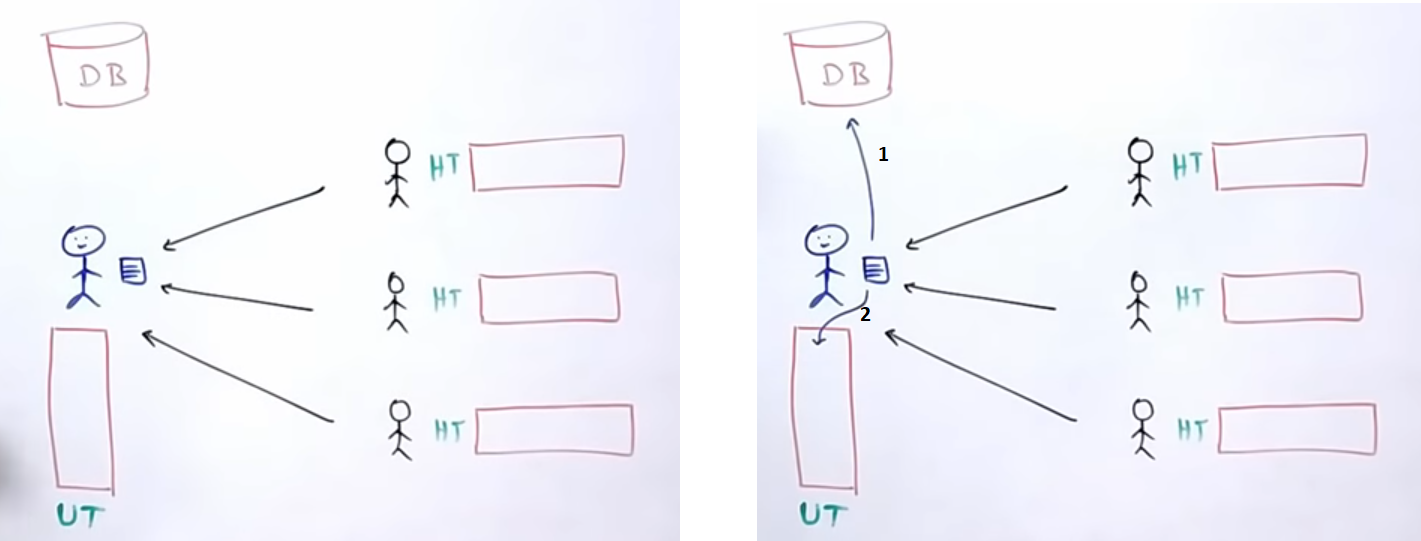 DB
HT
HT
HT
UT
DB
1
HT
HT
2
HT
UT